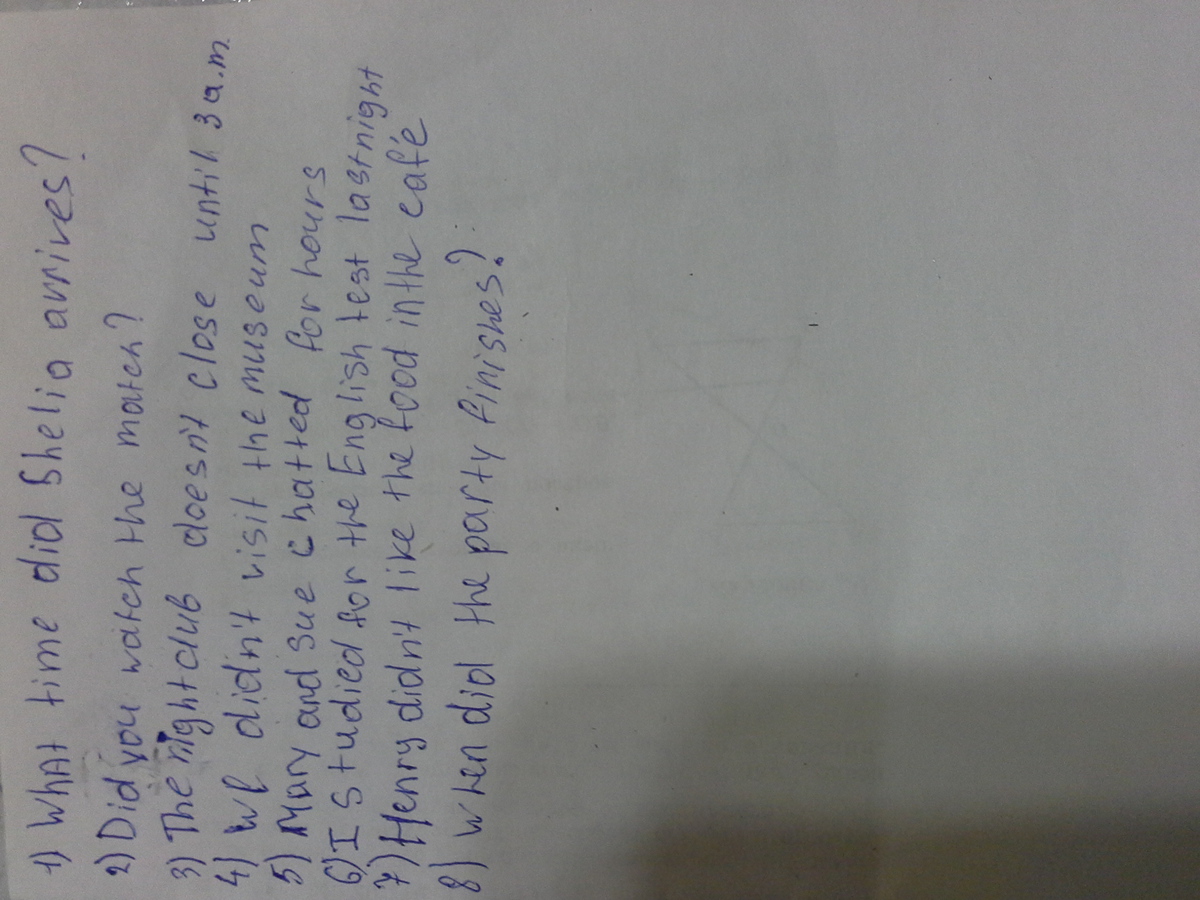 1) What time did Shelia arrives?
2) Did you watch the match?
3) The nightclub doesn't close until 3 a.m.
4) We didn't visit the museum
5) Mary and Sue chatted for hours
6) I studied for the English test lastnight
7) Henry didn't like the food in the café
8) When did the party finishes?